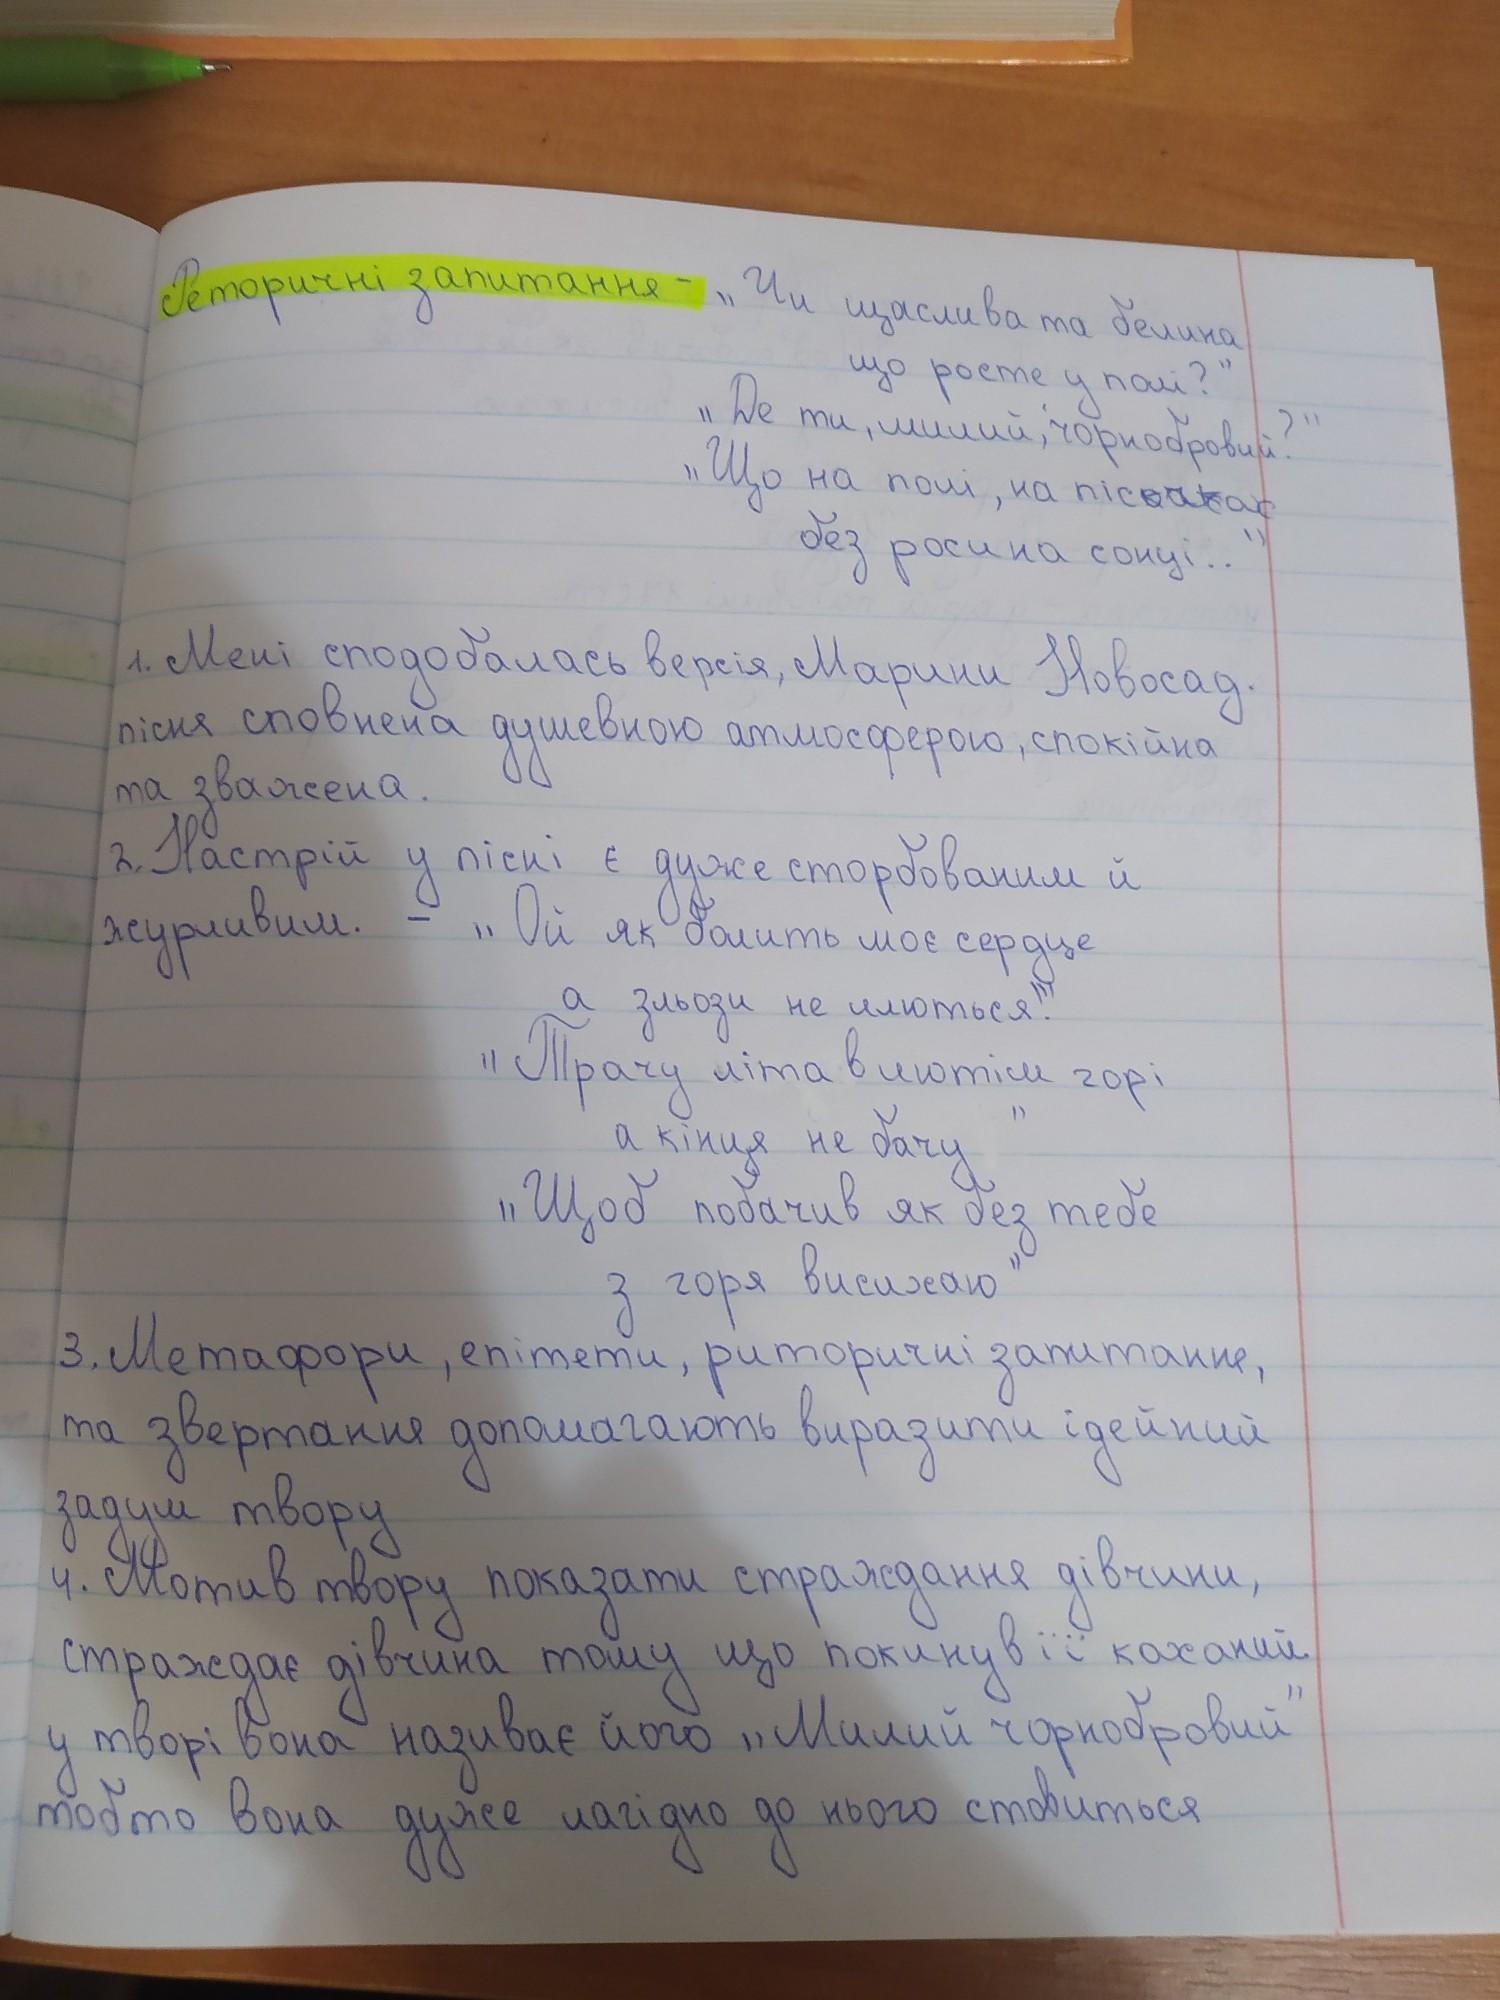 Реторичні запитання - „Чи щаслива та белина
що росте у полі?"
„Де ти, милий, чорнобровий?"
„Що на полі, на пісочках
без роси на сонці.."
1. Мені сподобалась версія, Марини Новосад.
пісня сповнена душевною атмосферою, спокійна
та зважена.
2. Настрій у пісні є дуже сторбованим й
журливим. - „Ой як болить моє сердце
а зльози не ллються!"
„Трачу літа в лютім горі
а кінця не бачу"
„Щоб побачив як без тебе
з горя висихаю"
3. Метафори, епітети, риторичні запитання,
та звертання допомагають виразити ідейний
задум твору
4. Мотив твору показати страждання дівчини,
страждає дівчина тому що покинув її коханий
у творі вона називає його „Милий чорнобровий"
тобто вона дуже лагідно до нього ставиться